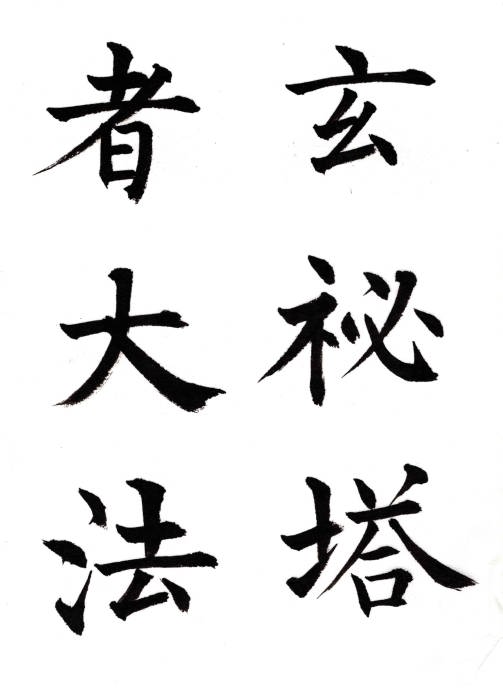 玄祕塔
者大法